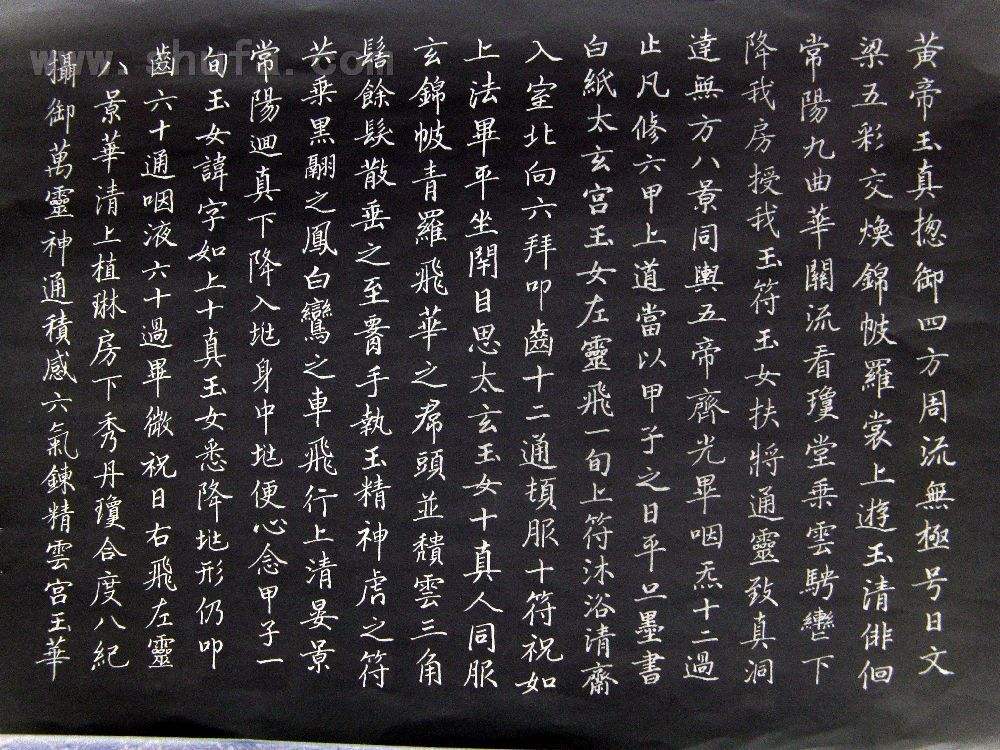 黃帝玉真揔御四方周流無極号曰文
梁五彩交煥錦帔羅裳上遊玉清俳佪
常陽九曲華關流看瓊堂乗雲騁轡下
降我房授我玉符玉女扶將通靈致真洞
達無方八景同輿五帝齊光畢咽炁十二過
止凡修六甲上道當以甲子之日平旦墨書
白紙太玄宮玉女左靈飛一旬上符沐浴清齋
入室北向六拜叩齒十二通頓服十符祝如
上法畢平坐閇目思太玄玉女十真人同服
玄錦帔青羅飛華之帬頭並穨雲三角
髻餘髮散垂之至胷手執玉精神虎之符
共乗黑翮之鳳白鸞之車飛行上清晏景
常陽迴真下降入埊身中埊便心念甲子一
旬玉女諱字如上十真玉女悉降埊形仍叩
齒六十通咽液六十過畢微祝曰右飛左靈
八景華清上植琳房下秀丹瓊合度八紀
攝御萬靈神通積感六氣錬精雲宮玉華
www.shufa.com